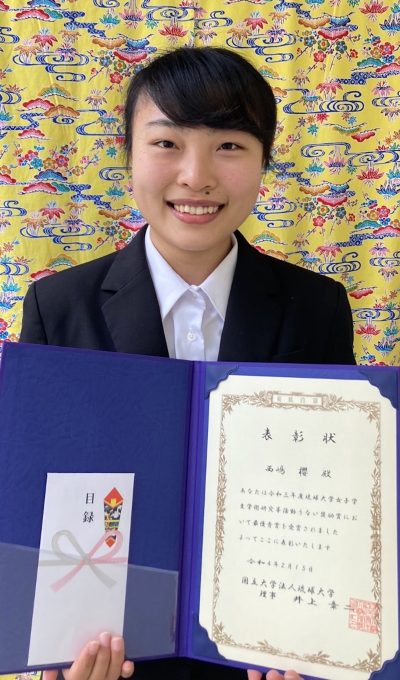 表彰状
西嶋 櫻 殿
あなたは令和三年度琉球大学女子学
生学術研究等活動うない奨励賞にお
いて最優秀賞を受賞されました
よってここに表彰いたします
令和4年2月15日
国立大学法人琉球大学
理事 井上 章二
目録